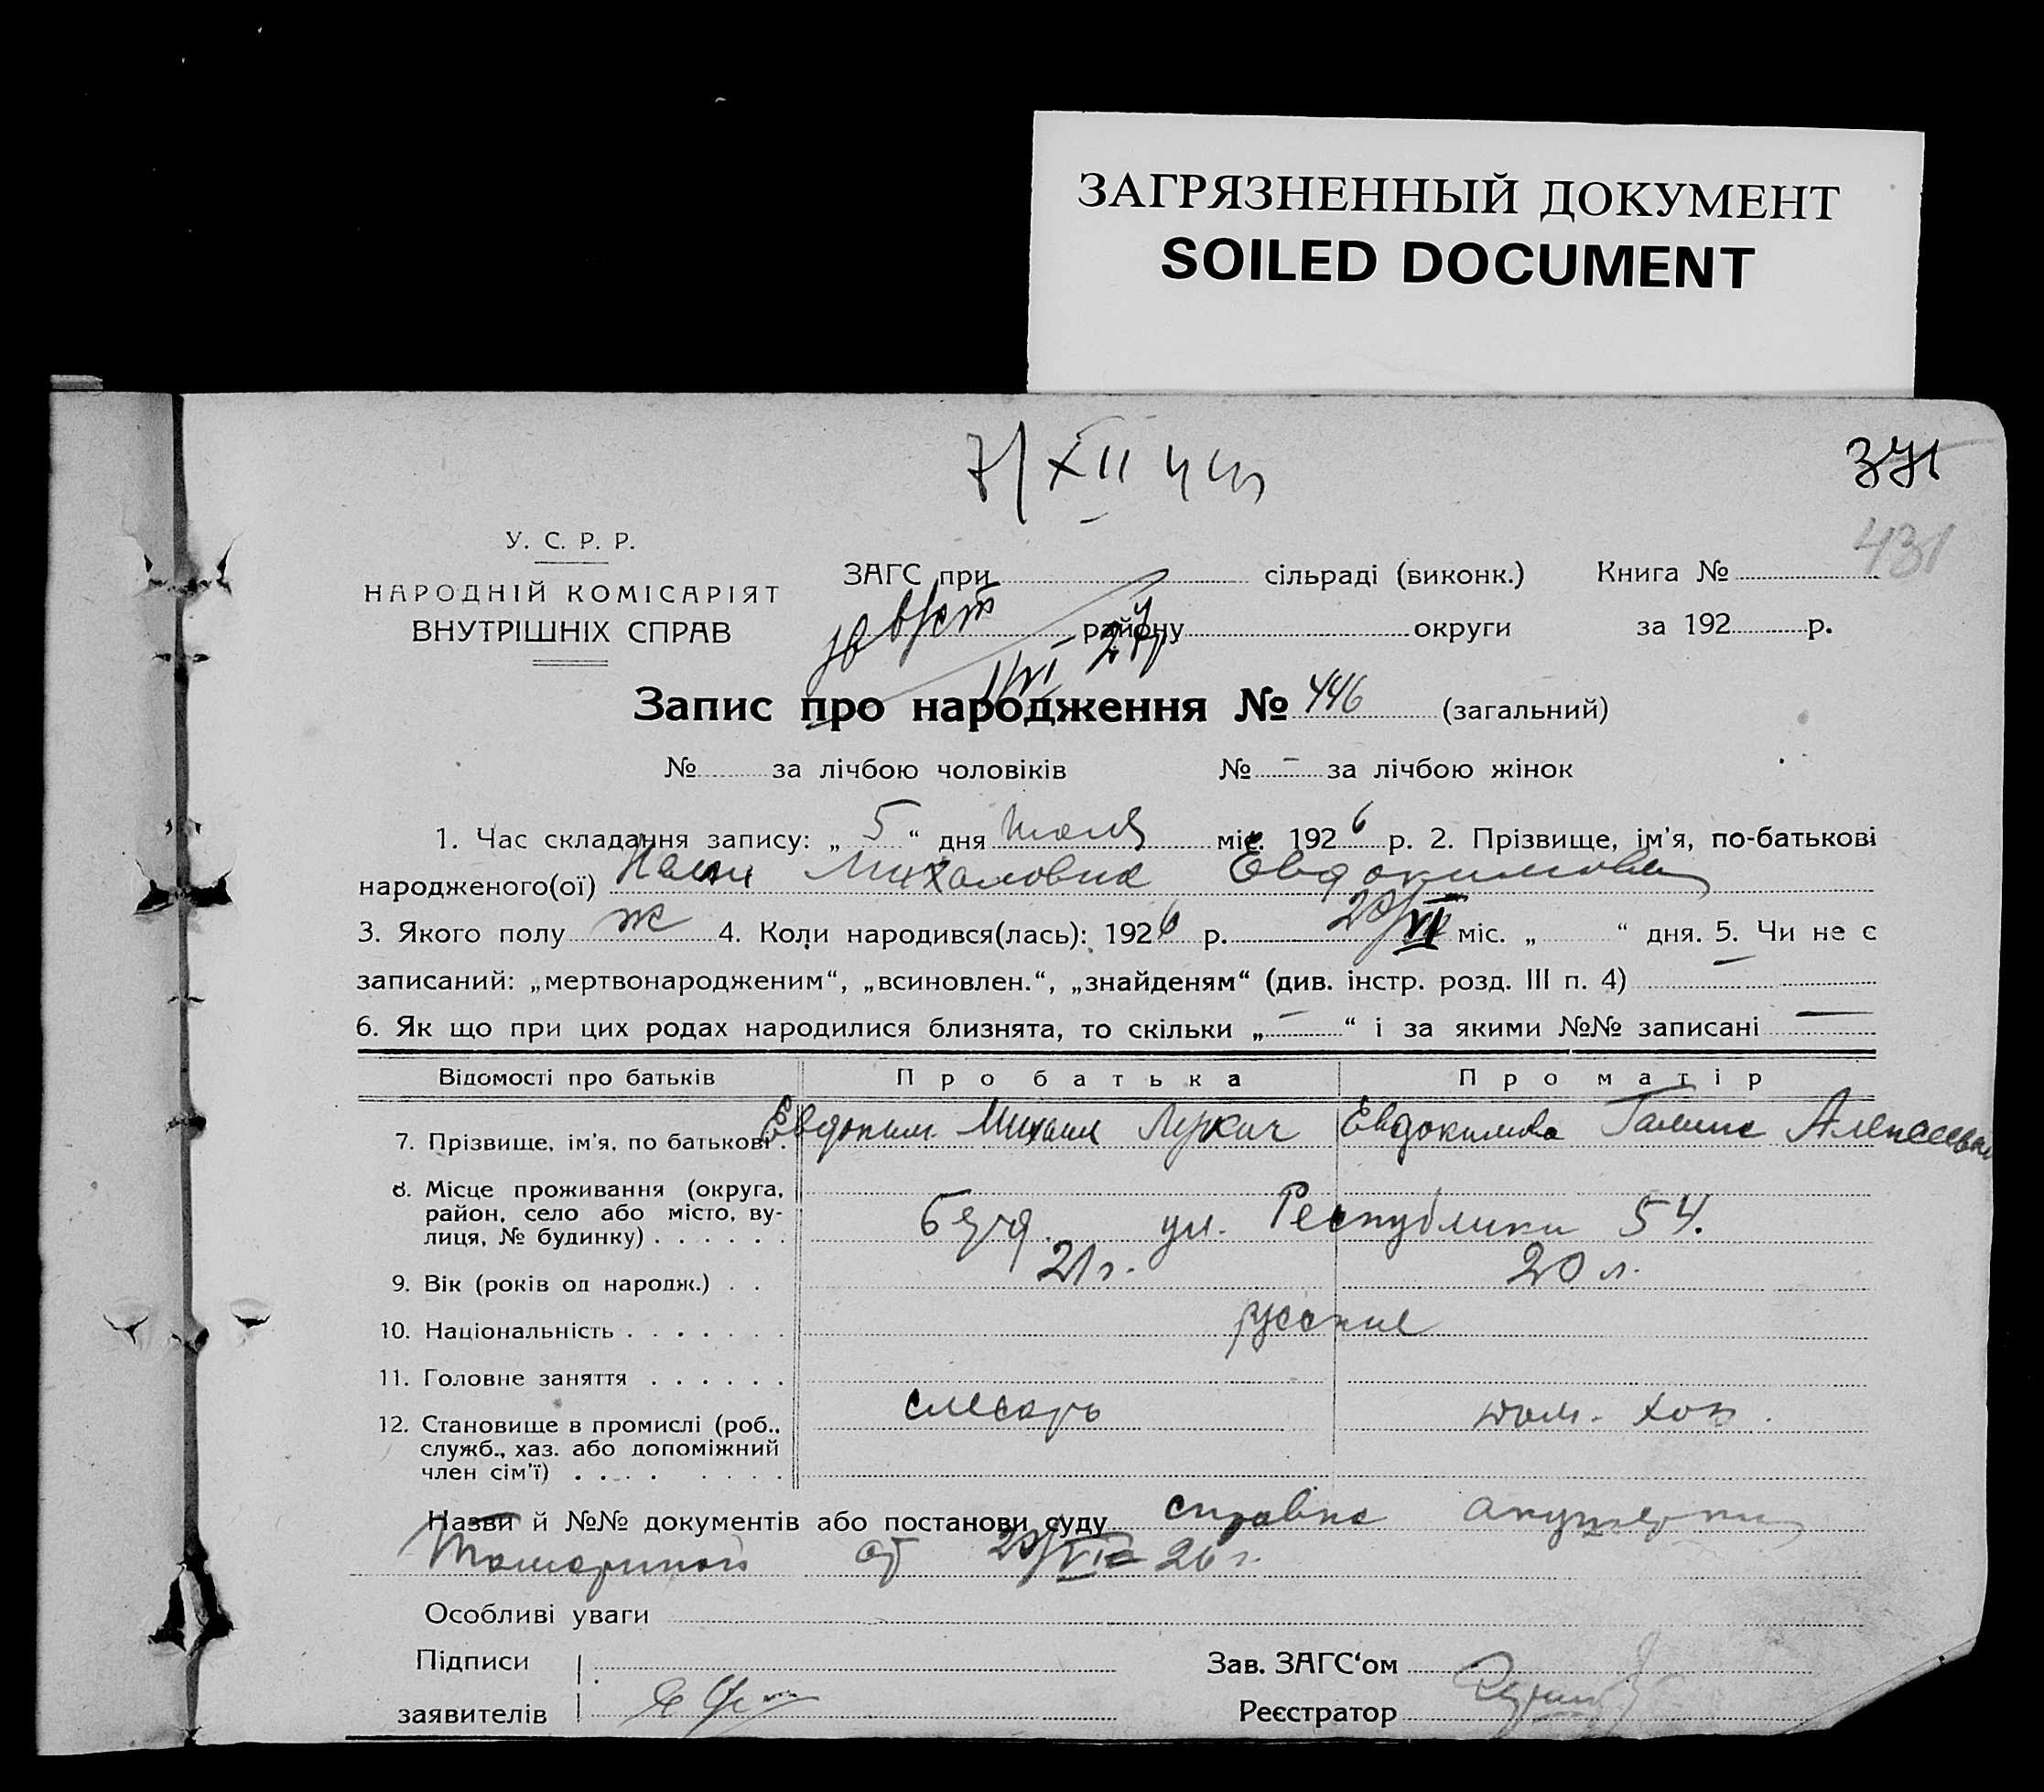 ЗАГРЯЗНЕННЫЙ ДОКУМЕНТ
SOILED DOCUMENT
7/XII
371
431
У. С. Р. Р.
НАРОДНІЙ КОМІСАРІЯТ
ВНУТРІШНІХ СПРАВ
ЗАГС при сільраді (виконк.) Книга №
району округи за 192 р.
Запис про народження № 446 (загальний)
№ за лічбою чоловіків № – за лічбою жінок
1. Час складання запису: „ 5 “ дня Июля міс. 1926 р. 2. Прізвище, ім'я, по-батькові
народженого(ої) Михаловна Евдокимова
3. Якого полу ж 4. Коли народився(лась): 1926 р. 20/VI міс. „ “ дня. 5. Чи не є
записаний: „мертвонародженим“, „всиновлен.“, „знайденям“ (див. інстр. розд. III п. 4) —
6. Як що при цих родах народилися близнята, то скільки „ – “ і за якими №№ записані —
Відомості про батьків Про батька Про матір
7. Прізвище, ім'я, по батькові . Евдоким. Михаил Лукич Евдокимова Галина Алексеевна
8. Місце проживання (округа,
район, село або місто, ву-
лиця, № будинку) . . . . . . ул. Республики 54.
9. Вік (років од народж.) . . 21 г. 20 л.
10. Національність . . . . . . . русские
11. Головне заняття . . . . . .
12. Становище в промислі (роб.,
служб., хаз. або допоміжний
член сім'ї) . . . . . . . . слесарь дом. хоз.
Назви й №№ документів або постанови суду справка акушерки
от 20/VI 26 г.
Особливі уваги
Підписи
заявителів
Зав. ЗАГС'ом
Реєстратор